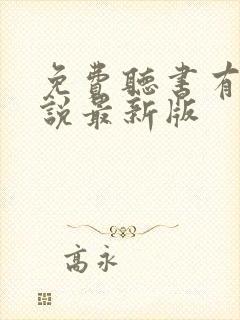 免費聽書有
說最新版
高永